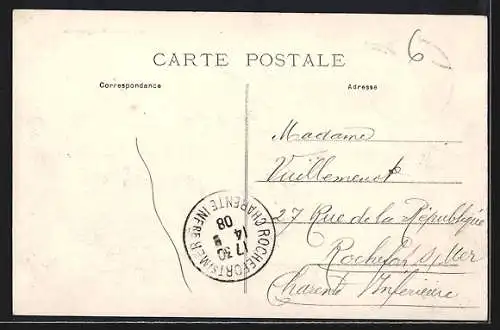 6
CARTE POSTALE
Correspondance
Adresse
Madame
Vuillemenot
27 Rue de la République
Rochefort s/Mer
Charente Inférieure
ROCHEFORT S/MER
CHARENTE INFRE
17 30
14
08